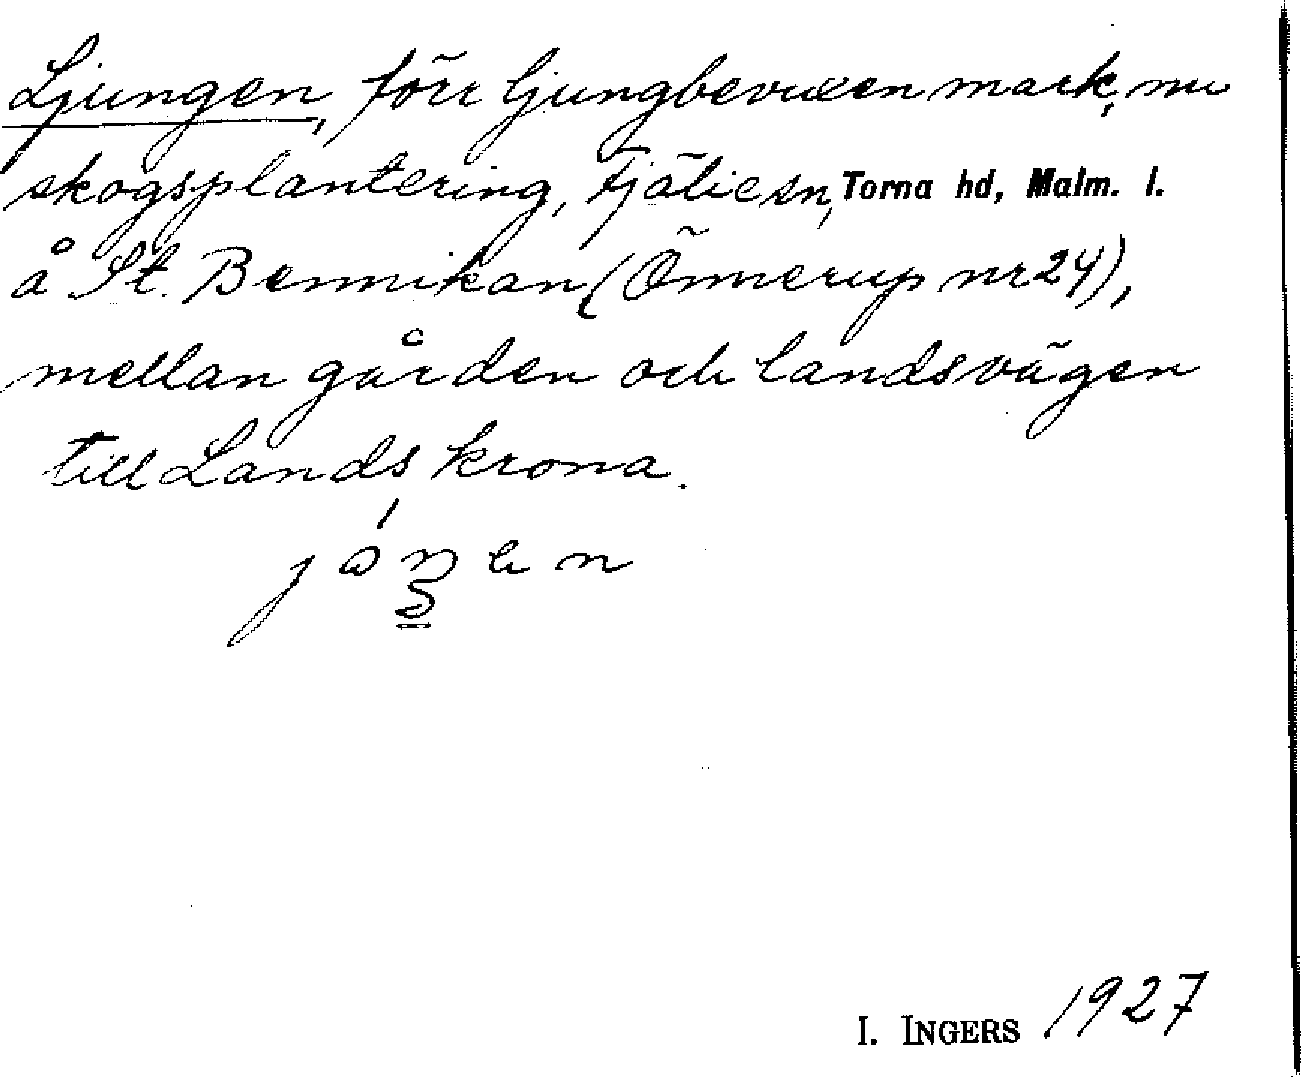 Ljungen, förr ljungbevuxen mark, nu
skogsplantering, Fjälie sn, Torna hd, Malm. l.
å St. Bennikan (Önnerup nr 24),
mellan gården och landsvägen
till Landskrona.
I. INGERS 1927